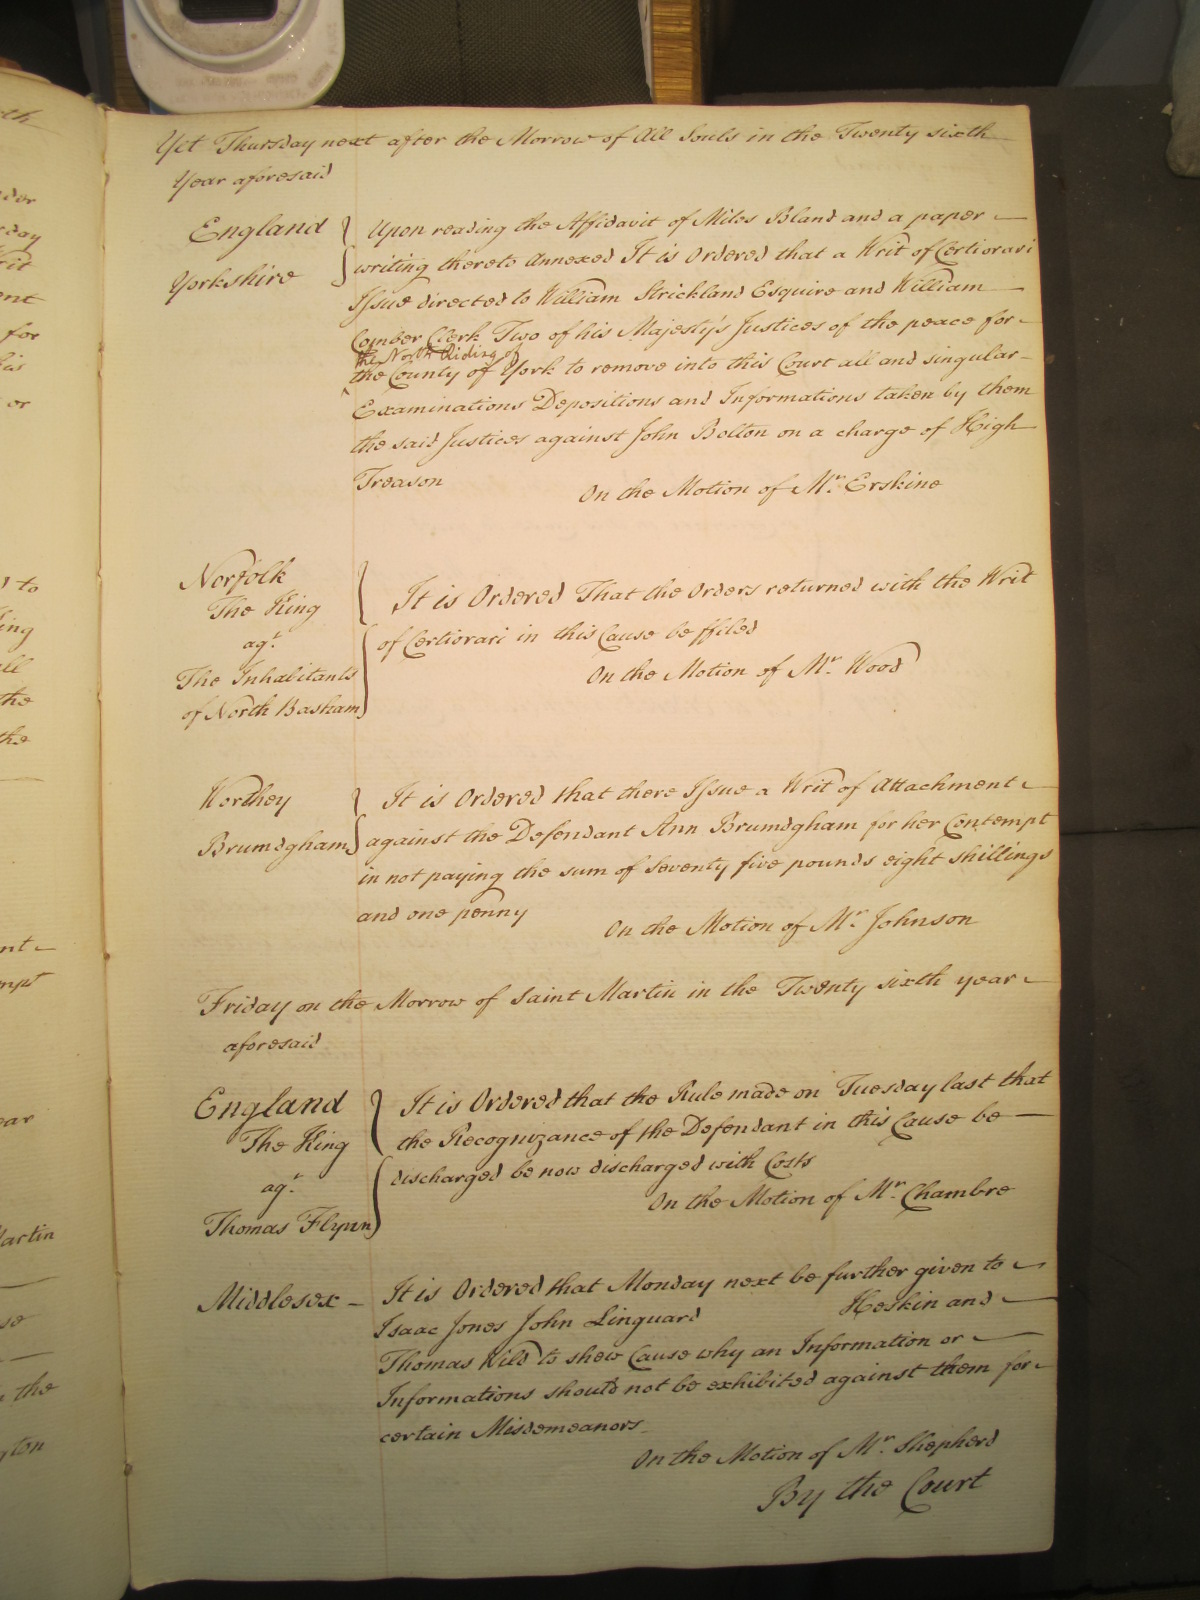 Yet Thursday next after the Morrow of All Souls in the Twenty sixth
Year aforesaid
England
Yorkshire
Upon reading the Affidavit of Miles Bland and a paper
writing thereto Annexed It is Ordered that a Writ of Certiorari
Issue directed to William Strickland Esquire and William
Comber Clerk Two of his Majesty's Justices of the peace for
the North Riding of
the County of York to remove into this Court all and singular
Examinations Depositions and Informations taken by them
the said Justices against John Bolton on a charge of High
Treason
On the Motion of Mr. Erskine
Norfolk
The King
agt.
The Inhabitants
of North Basham
It is Ordered That the Orders returned with the Writ
of Certiorari in this Cause be ffiled
On the Motion of Mr. Wood
Worthey
Brumdgham
It is Ordered that there Issue a Writ of Attachment
against the Defendant Ann Brumdgham for her Contempt
in not paying the sum of Seventy five pounds eight shillings
and one penny
On the Motion of Mr. Johnson
Friday on the Morrow of Saint Martin in the Twenty sixth year
aforesaid
England
The King
agt.
Thomas Flynn
It is Ordered that the Rule made on Tuesday last that
the Recognizance of the Defendant in this Cause be
discharged be now discharged with Costs
On the Motion of Mr. Chambre
Middlesex
It is Ordered that Monday next be further given to
Isaac Jones John Linguard Heskin and
Thomas Wild to shew Cause why an Information or
Informations should not be exhibited against them for
certain Misdemeanors
On the Motion of Mr. Shepherd
By the Court